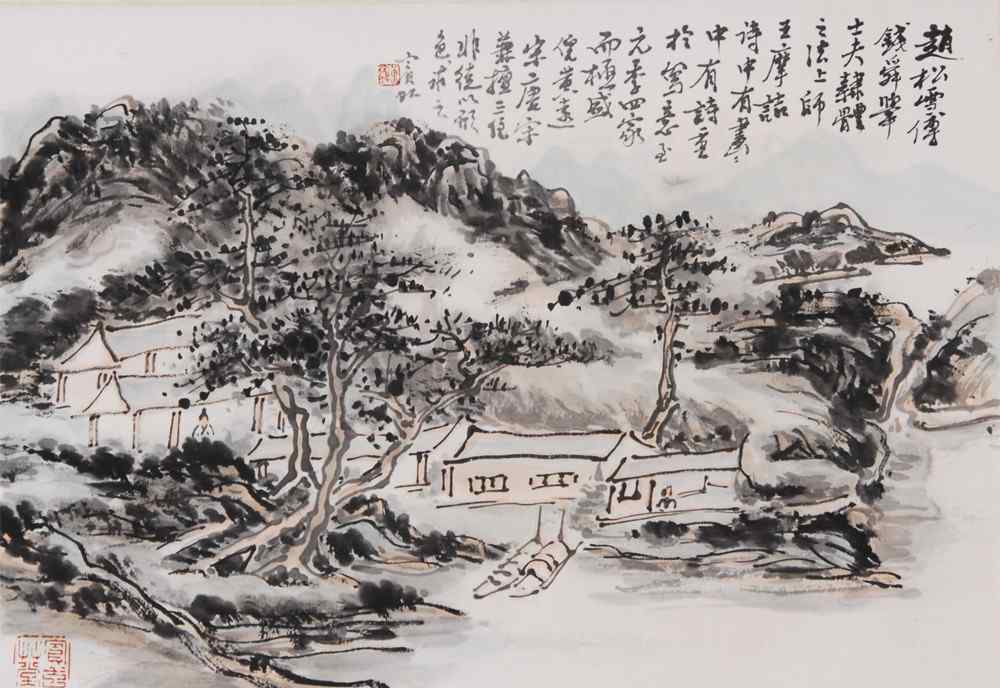 趙松雪傳
錢舜舉
士夫隸體
之法上師
王摩詰
詩中有畫々
中有詩重
於寫意至
元季四家
而極盛
倪黃遠
宗唐宋
兼擅二絕
非徒以形
色求之
賓虹
賓虹草堂